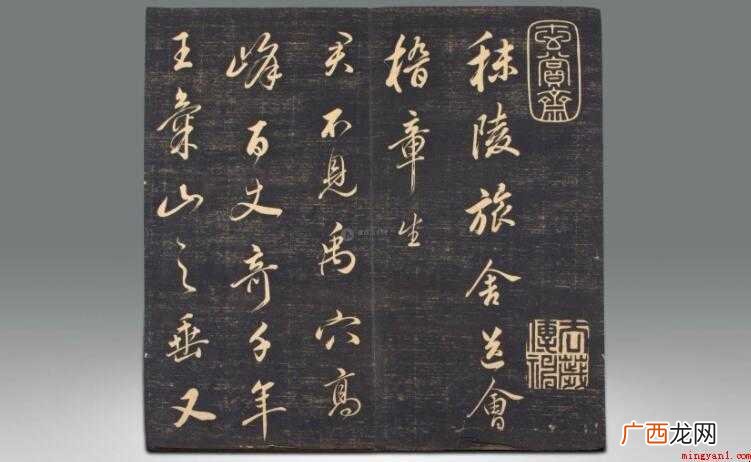 玄賞齋
秣陵旅舍送會
稽章生
君不見禹穴高
峰百丈奇千年
王氣山之垂又
广西龙网
mingyan1.com